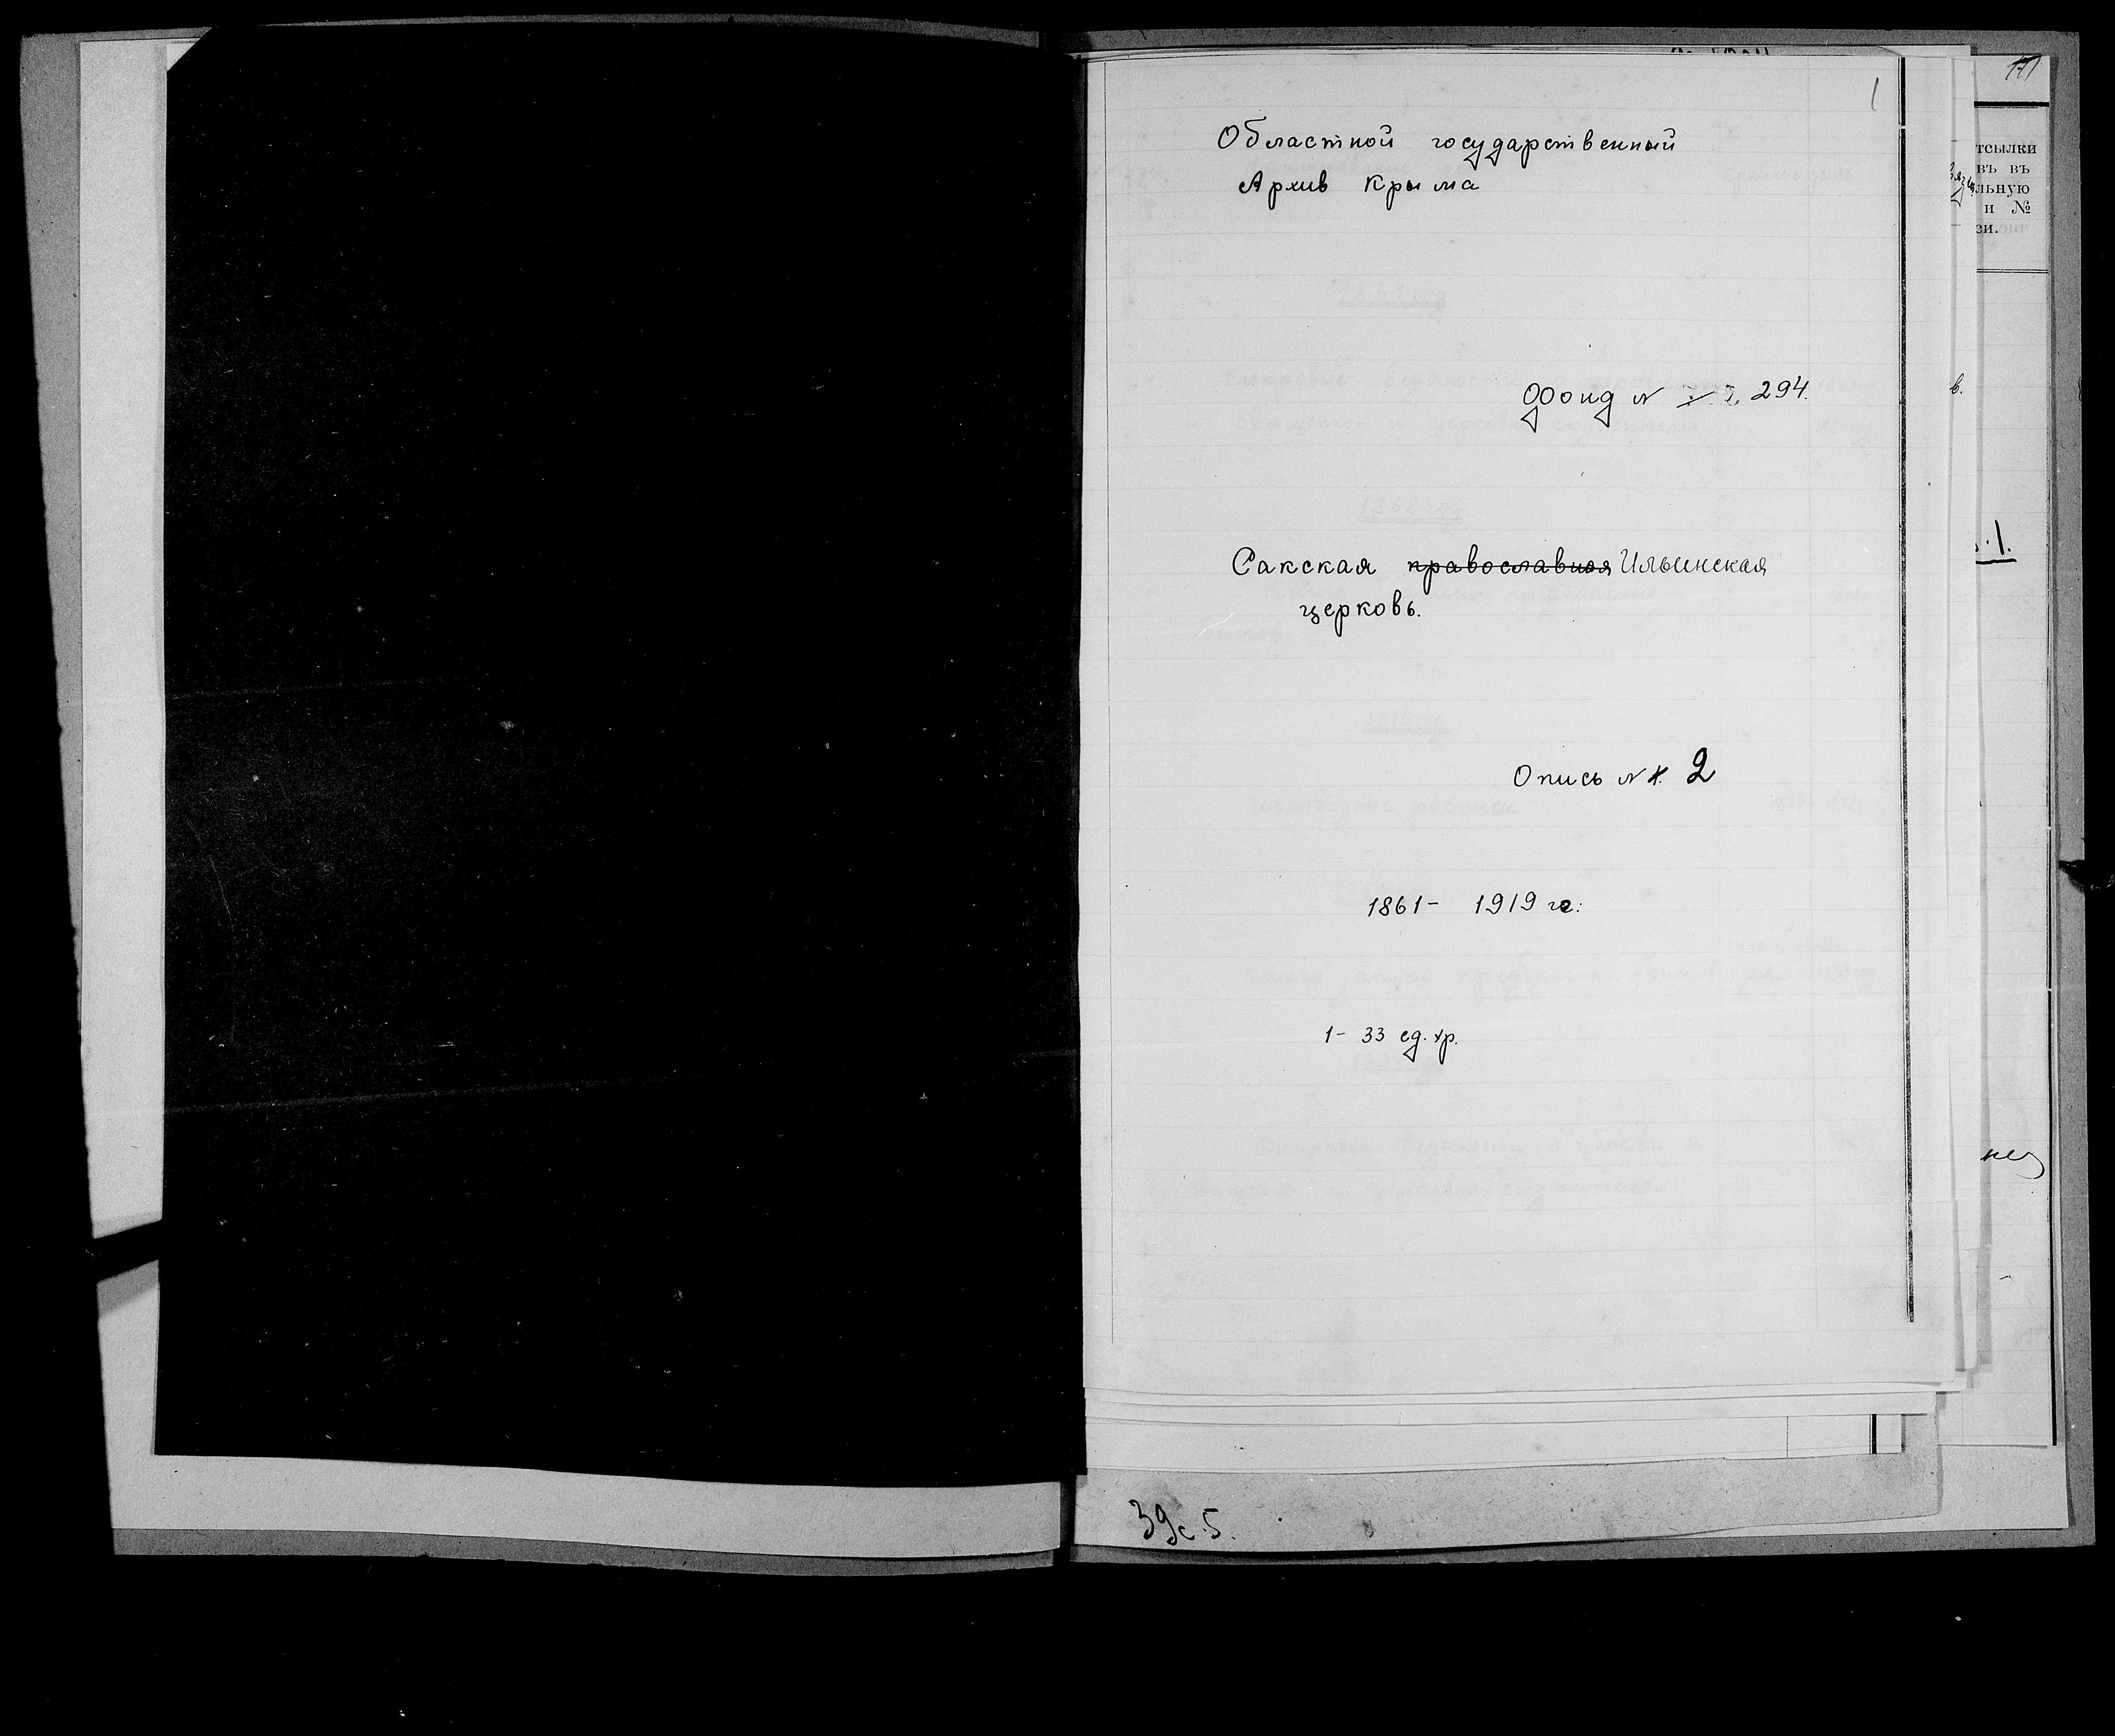 1
Областной государственный
Архив Крыма
Фонд N 294.
Сакская православная Ильинская
церковь.
Опись N 2
1861- 1919 гг.
1- 33 ед. хр.
тсылки
въ въ
льную
и №
си.
в.
1.
39с.5.